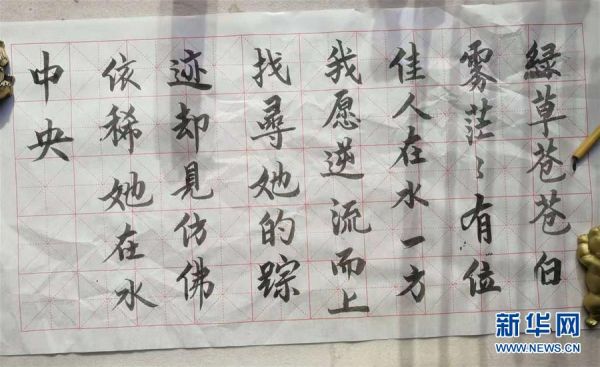 緑草苍苍白
雾茫々有位
佳人在水一方
我愿逆流而上
找尋她的踪
迹却見仿佛
依稀她在水
中央
新华网
WWW.NEWS.CN